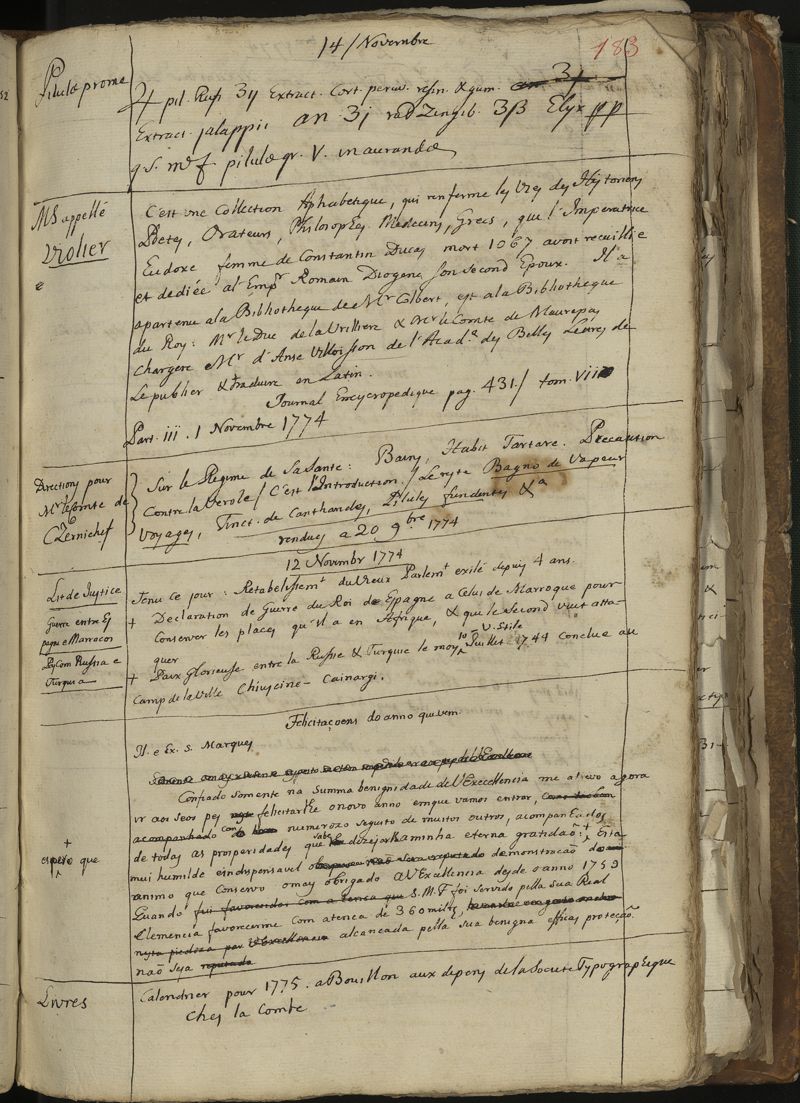 14/ Novembre
183
Pilulæ pro me
♃ pil. Rufi ʒij Extract. Cort. peruv. resin. & gum.
Extract. jalappii an ʒj rad Zingib. ʒβ Elyx pp
q s. m. f pilulæ gr. V. inaurandæ
MS appellé
Violier
e
C'est une Collection Alphabetique, qui renferme les Vies des Historiens
Poetes, Orateurs, Philosophes Medecins, Grecs, que l'Imperatrice
Eudoxe, femme de Constantin Ducas mort 1067 avoit recuillie
et dediée al'Emp.r Romain Diogene son second Epoux. Il a
apartenu ala Bibliotheque de Mr Colbert, est ala Bibliotheque
du Roy: Mr le Duc de la Vrilliere & Mr le Comte de Maurepas
chargere Mr d'Anse Villoisson de l'Acad.e des Belles Letres de
Le publier & traduire en Latin.
Journal Encyclopedique pag. 431/ tom. Vii
Part. iii. 1 Novembre 1774
Directions pour
Mr le Comte de
Czernichef
Sur le Regime de Sa Santé: Bains, Habit Tartare. Precaution
Contre la Verole / C'est l'Introduction / Le reste Bagno de Vapeur
Voyages, Tinct. de Canthandes, Pilules fundentes &a
rendues a 20 9bre 1774
12 Novembr 1774
Lit de Justice
Tenu ce jour: Retablissemt du Vieux Parlemt exilé depuis 4 ans.
Guerre entre Es
pagne e Marrocos
+ Declaration de Guerre du Roi de Espagne a Celui de Marroque pour
Conserver les places qu'il a en Afrique, & que le Second veut atta-
quer
Pax com Russia e
Turquia
+ Paix glorieuse entre la Russie & Turquie le moys 10 V. Stile Juillet 1744 conclue au
Camp de la Ville Chiuscine-Cainargi.
Felicitaçoens do anno que vem
Il. e Ex. S. Marques
Confiado somente na Summa benignidade de V Excellencia me atrevo agora
ir aos seos pes felicitarlhe o novo anno em que vamos entrar,
acompanhado com numerozo seguito de muitos outros, acompanhados
de todas as prosperidades que Sabe dezejar a minha eterna gratidaõ: + Esta
mui humilde e indispensavel demonstracaõ
+
espero que
animo que Conservo o mais obrigado a V Excellencia desde o anno 1759
Quando S. M. F foi servido pella sua Real
Clemencia favorecerme com a tenca de 360 mil rs,
alcancada pella sua benigna e efficas proteçaõ
naõ seja reputada
Livres
Calendrier pour 1775. a Bouillon aux depens de la Societe Typographique
Ches la Combe